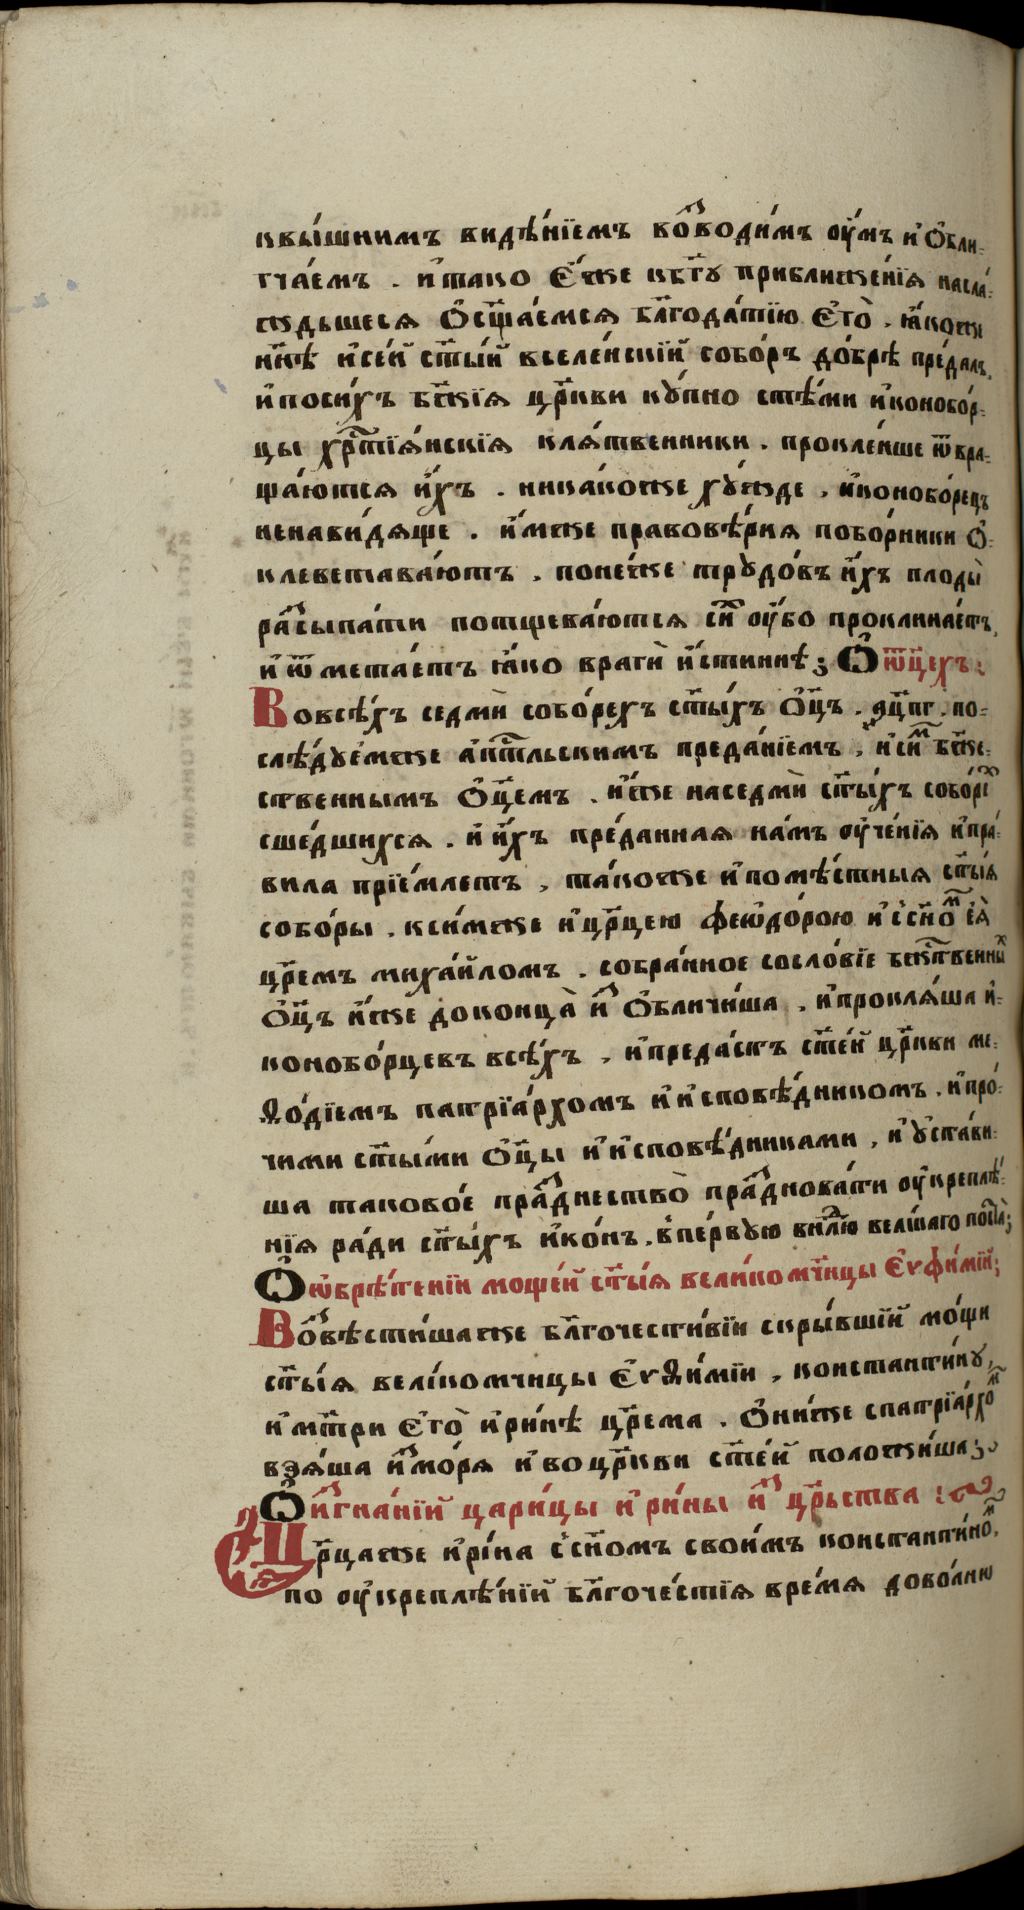 квы́шнимъ видѣ́нїемъ воⷥводи́мъ оу҆́мъ и҆ѻ҆бли-
гча́емъ . и҆тако є҆́же кбг҃у приближе́нїѧ насла-
ждьшесѧ ѻ҆сщ҃а́емсѧ бл҃года́тїю є҆гѡ̀ . ꙗ҆́коже
нн҃ѣ и҆се́й ст҃ы́й вселе́нскїй собо́ръ до́брѣ пре́далъ,
и҆поси́хъ бж҃їѧ цр҃кви ку́пно стѣ́ми и҆конобо́р-
цы хрⷭ҇тїѧ́нскїѧ клѧ́твенники . проклѐнше ѿвра-
ща́ютсѧ и҆́хъ . никакоже ху́жде , и҆конобо́рецъ
ненави́дѧще . и҆́мже правовѣ́рїѧ побо́рники ѻ҆-
клевета́ваютъ , поне́же трудо́въ и҆́хъ плоды̀
раⷥсыпа́ти потщева́ютсѧ сиⷯ оу҆́бо проклина́етъ,
и҆ ѿмета́етъ ꙗ҆́ко врагѝ и҆́стиннѣ ; Ѻ҆ ѻ҆тц҃ехъ :
Вовсѣ́хъ седмѝ собо́рехъ ст҃ы́хъ ѻ҆ц҃ъ . ҂ац҃пг . по-
слѣ́дуемже а҆пⷭ҇тльскимъ преда́нїемъ , и҆сиⷨ бж҃е-
ственнымъ ѻ҆ц҃емъ . и҆́же наседмѝ ст҃ы́хъ собо́рѣⷯ
сше́дшихсѧ . и҆ и҆́хъ пре́данная на́мъ оу҆че́нїѧ и҆пра́-
вила прїе́млетъ , та́коже и҆помѣ́стныѧ ст҃ы́ѧ
собо́ры . кси́мже и҆цр҃цею феѡдо́рою и҆ с҆сн҃оⷨ є҆ѧ̀
цр҃емъ миха́йломъ . собра́нное сосло́вїе бжⷭ҇твенныⷯ
ѻ҆ц҃ъ и҆́же доконца̀ иⷯ ѻ҆бличи́ша , и҆проклѧ́ша и҆-
конобо́рцевъ всѣ́хъ , и҆преда́стъ ст҃е́й цр҃кви ме-
ѳо́дїемъ патрїа́рхомъ и҆ и҆сповѣ́дникомъ , и҆про́-
чими ст҃ы́ми ѻ҆ц҃ы и҆ и҆сповѣ́дниками , и҆ у҆стави-
ша таково́е праⷥднество̀ праⷥднова́ти оу҆крѣплѣ́-
нїѧ ра́ди ст҃ы́хъ и҆ко́нъ . в҆пе́рвую вели́каго поста̀ ;
Ѻ҆ ѡ҆брѣ́тенїи моще́й ст҃ы́ѧ вели́комч҃ницы є҆ѵфи́мїй ;
Воⷥвѣсти́шаже бл҃гочести́вїи скры́вшїй мо́щи
ст҃ы́ѧ вели́комчницы є҆ѵѳи́мїи , константи́ну,
и҆мт҃ри є҆гѡ̀ и҆ри́нѣ цр҃ема . ѻ҆ни́же спатрїа́рхоⷨ
взѧ́ша иⷥмо́рѧ и҆ воцр҃кви ст҃е́й положи́ша ;
Ѻ҆ иⷥгна́нїй цари́цы и҆ри́ны иⷥ цр҃ьства :
Цр҃цаже и҆ри́на с҆сн҃омъ свои́мъ константи́ноⷨ,
по оу҆крѣплѣ́нїй бл҃гоче́стїѧ вре́мѧ дово́лно